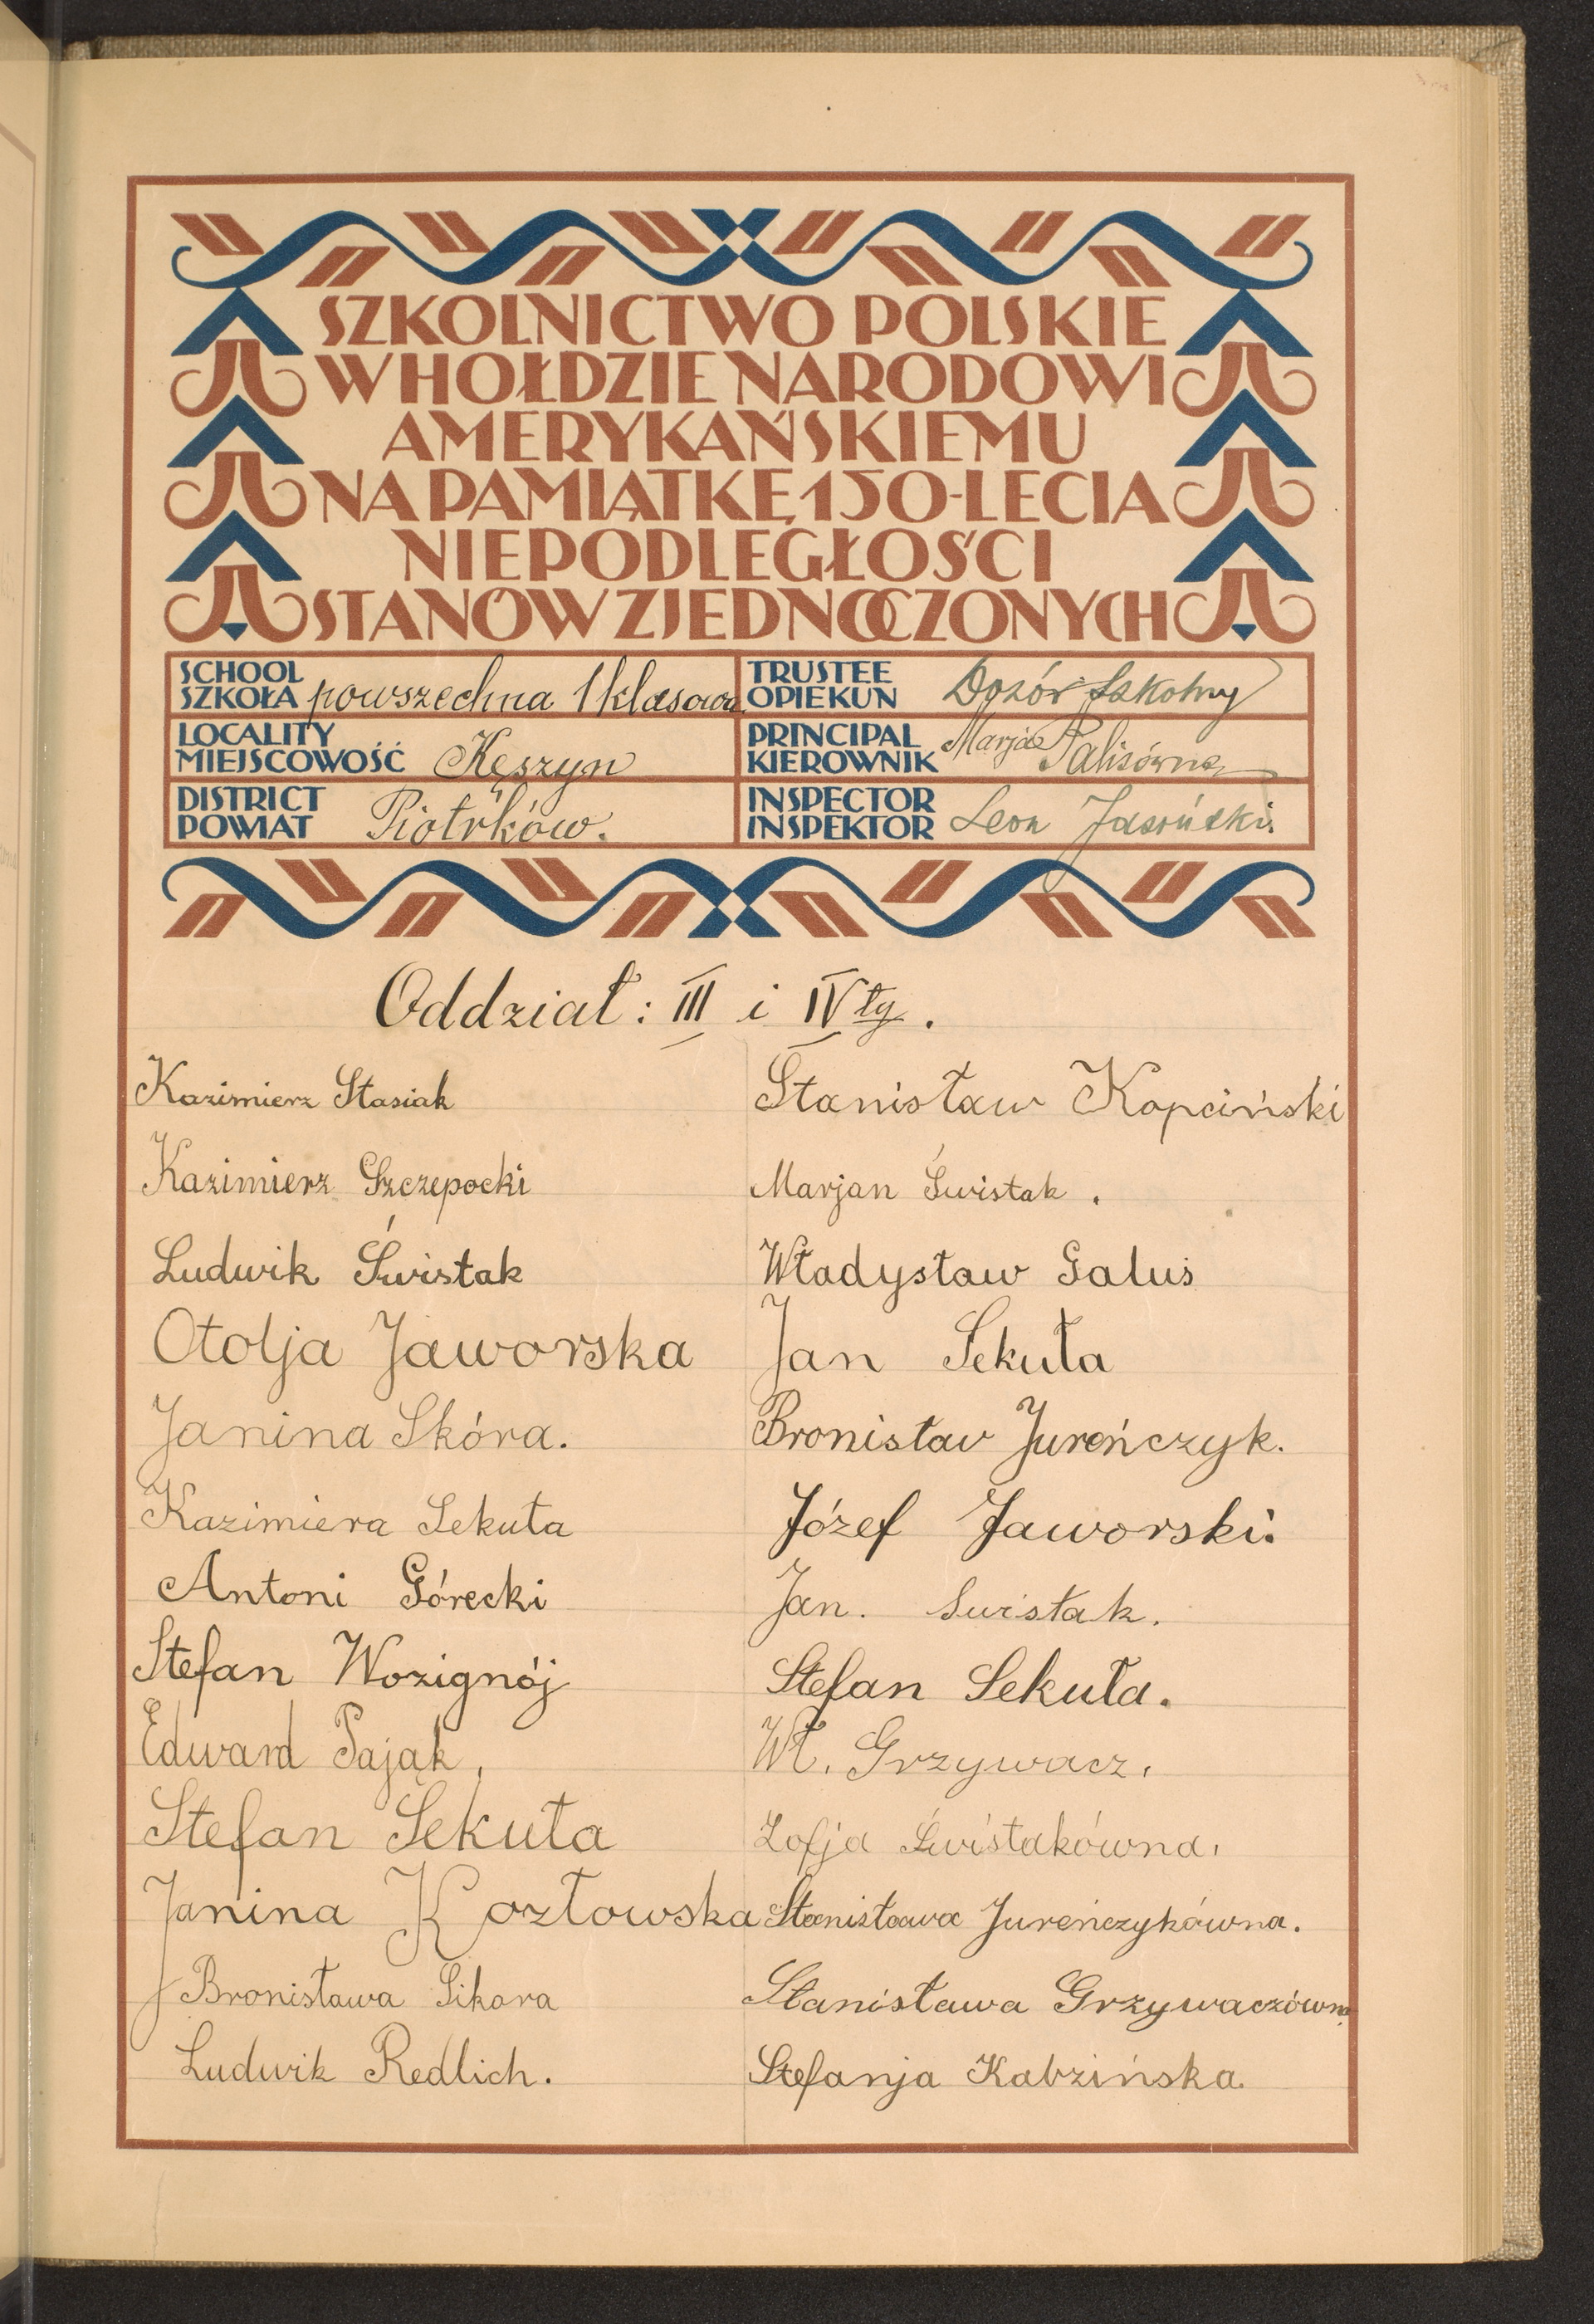 SZKOLNICTWO POLSKIE
W HOŁDZIE NARODOWI
AMERYKAŃSKIEMU
NA PAMIĄTKĘ 150-LECIA
NIEPODLEGŁOŚCI
STANÓW ZJEDNOCZONYCH
SCHOOL
SZKOŁA powszechna 1 klasowa
TRUSTEE
OPIEKUN Dozór Szkolny
LOCALITY
MIEJSCOWOŚĆ Kęszyn
PRINCIPAL
KIEROWNIK Marja Palisówna
DISTRICT
POWIAT Piotrków.
INSPECTOR
INSPEKTOR Leon Jasiński.
Oddział: III i IV ty.
Kazimierz Stasiak
Kazimierz Szczepocki
Ludwik Świstak
Otolja Jaworska
Janina Skóra.
Kazimiera Sekuła
Antoni Górecki
Stefan Wozignój
Edward Pająk,
Stefan Sekuła
Janina Kozłowska
Bronisława Sikora
Ludwik Redlich.
Stanisław Kopciński
Marjan Świstak.
Władysław Galus
Jan Sekuła
Bronisław Jureńczyk.
Józef Jaworski.
Jan. Swistak.
Stefan Sekuła.
Wł. Grzywacz.
Zofja Świstakówna.
Stanisława Jureńczykówna.
Stanisława Grzywaczówna
Stefanja Kabzińska